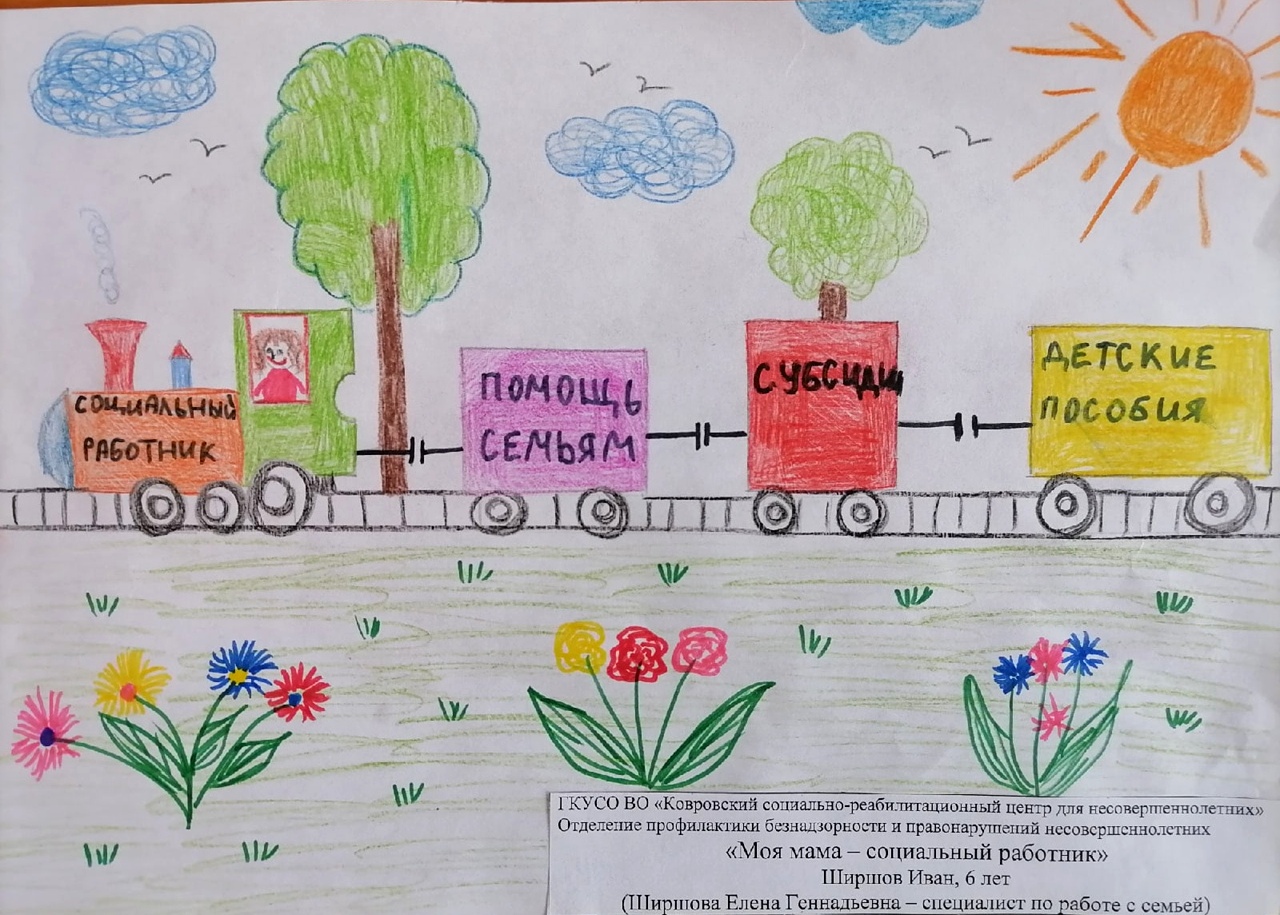 СОЦИАЛЬНЫЙ
РАБОТНИК
ПОМОЩЬ
СЕМЬЯМ
СУБСИДИИ
ДЕТСКИЕ
ПОСОБИЯ
ГКУСО ВО «Ковровский социально-реабилитационный центр для несовершеннолетних»
Отделение профилактики безнадзорности и правонарушений несовершеннолетних
«Моя мама – социальный работник»
Ширшов Иван, 6 лет
(Ширшова Елена Геннадьевна – специалист по работе с семьей)